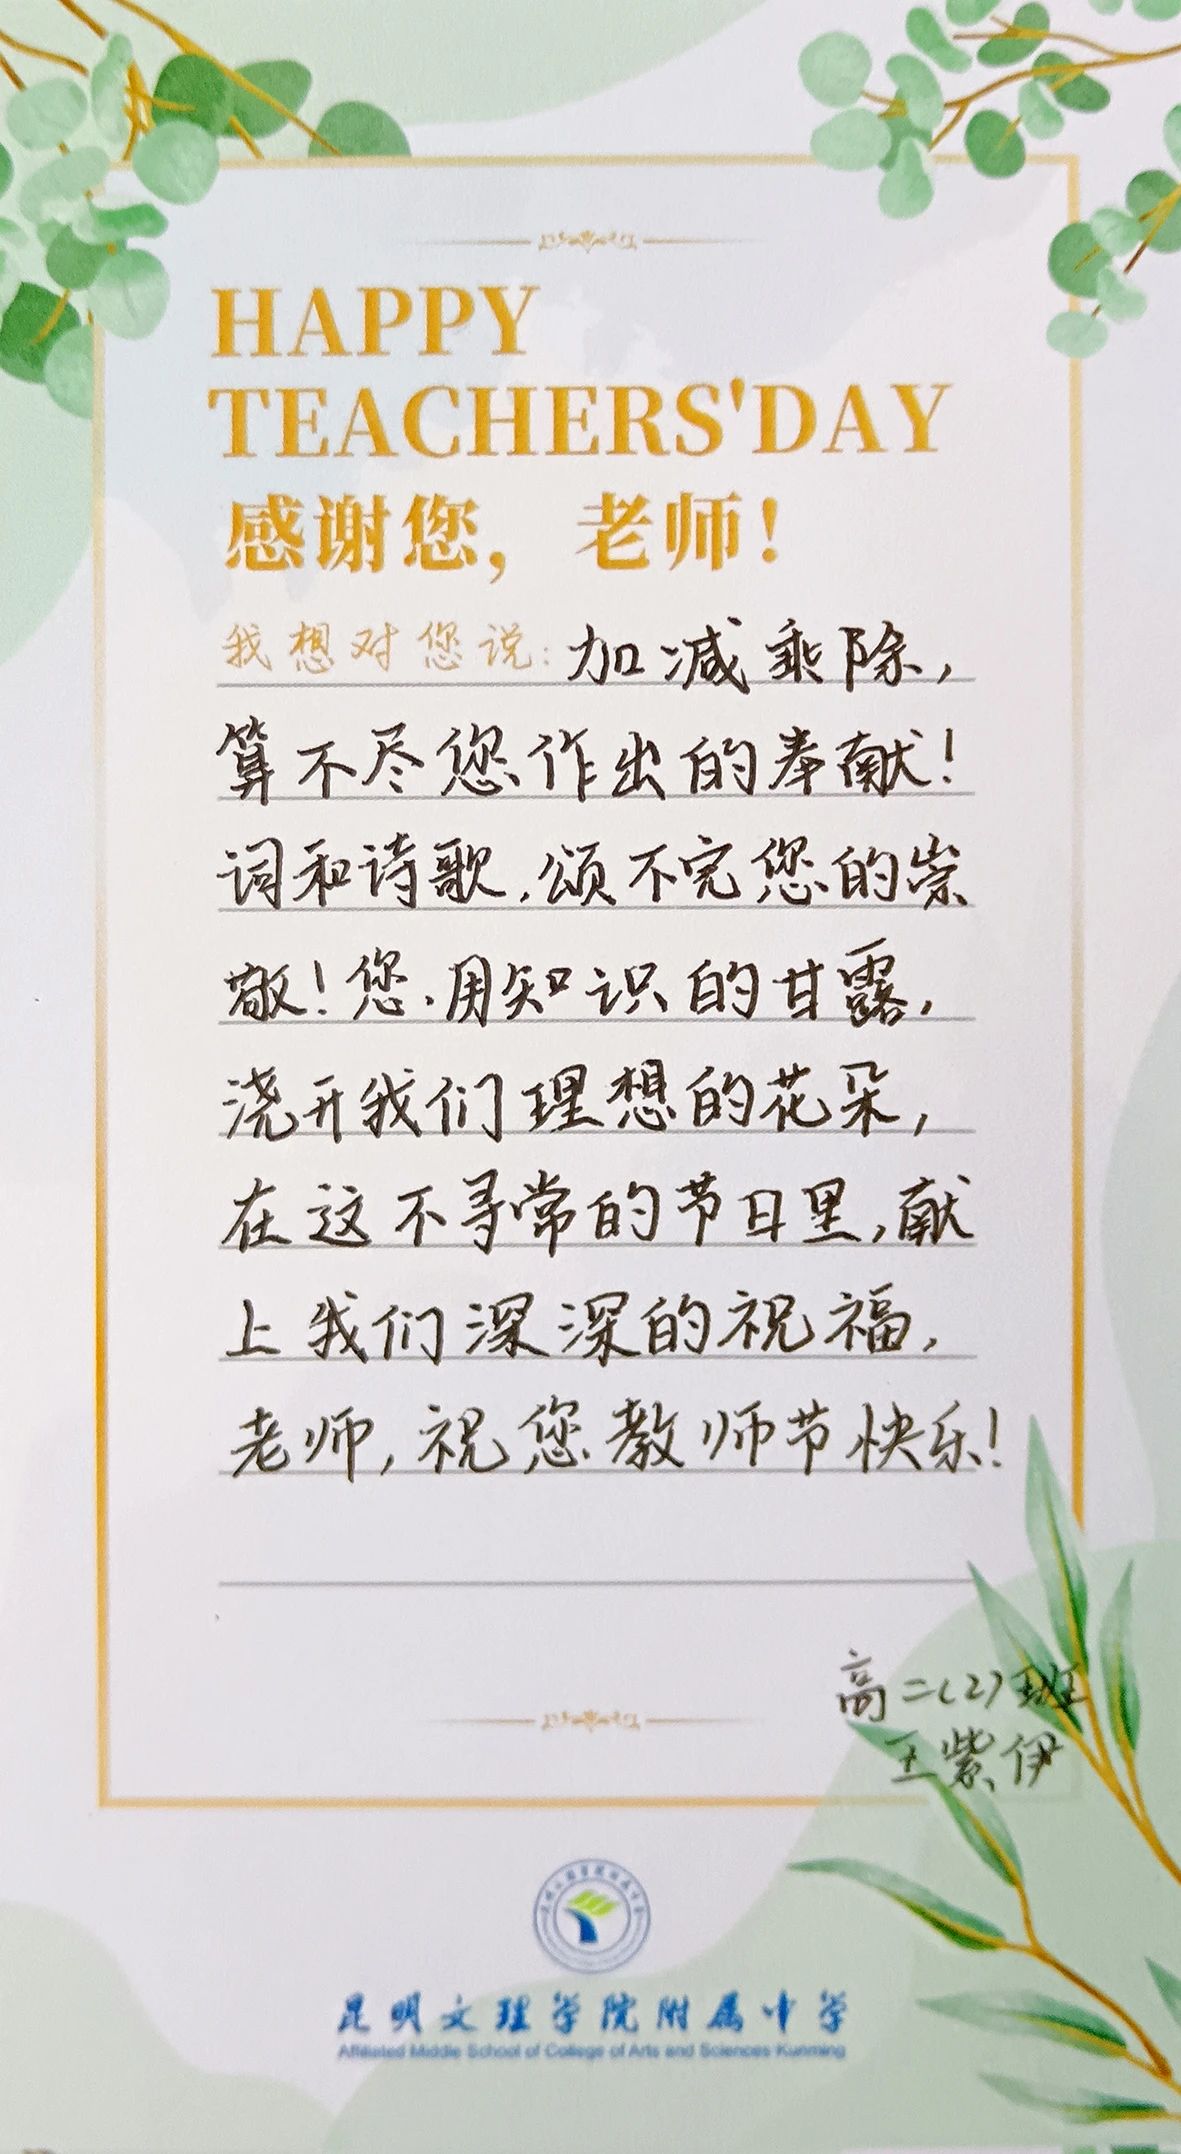 HAPPY
TEACHERS'DAY
感谢您，老师！
我想对您说：加减乘除，
算不尽您作出的奉献！
词和诗歌，颂不完您的崇
敬！您，用知识的甘露，
浇开我们理想的花朵，
在这不寻常的节日里，献
上我们深深的祝福，
老师，祝您教师节快乐！
高二(2)班
王紫伊
昆明文理学院附属中学
Affiliated Middle School of College of Arts and Sciences Kunming